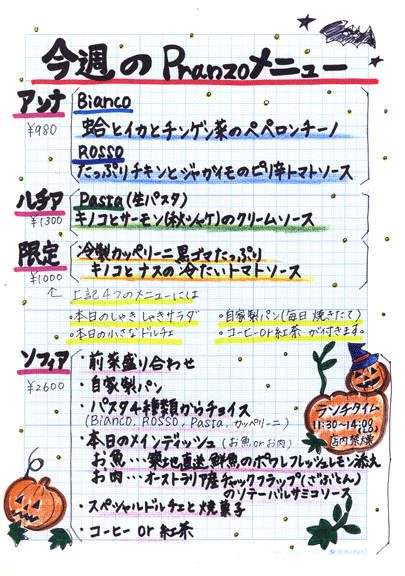 今週のPranzoメニュー
アンナ
¥980
Bianco
蛤とイカとチンゲン菜のペペロンチーノ
Rosso
たっぷりチキンとジャガイモのピリ辛トマトソース
ルチア
¥1300
Pasta(生パスタ)
キノコとサーモン(秋シャケ)のクリームソース
限定
¥1000
冷製カッペリーニ黒ゴマたっぷり
キノコとナスの冷たいトマトソース
↑上記4つのメニューには
・本日のしゃきしゃきサラダ ・自家製パン(毎日焼きたて)
・本日の小さなドルチェ ・コーヒーOr紅茶 が付きます。
ソフィア
¥2600
・前菜盛り合わせ
・自家製パン
・パスタ4種類からチョイス
(Bianco, Rosso, Pasta, カッペリーニ)
・本日のメインディッシュ(お魚orお肉)
お魚…築地直送鮮魚のポワレフレッシュレモン添え
お肉…オーストラリア産チャックフラップ(ざぶとん)
のソテーバルサミコソース
・スペシャルドルチェと焼菓子
・コーヒー Or 紅茶
ランチタイム
11:30~14:00
(L.O.)
店内禁煙